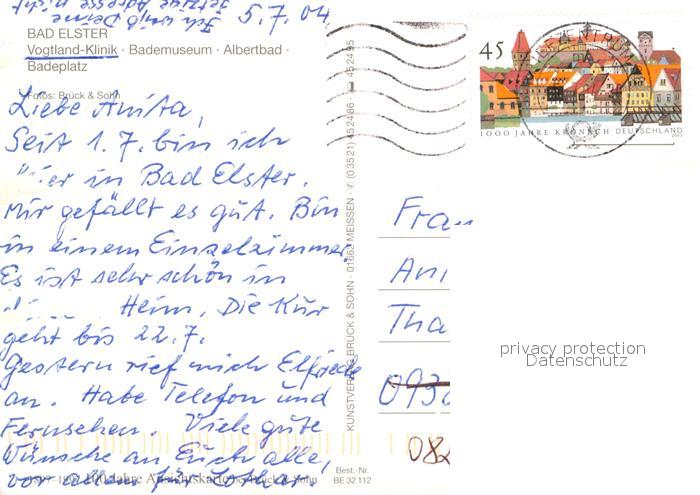 Ich weiß Deine
jetzige Adresse nicht
5.7.04
BAD ELSTER
Vogtland-Klinik · Bademuseum · Albertbad ·
Badeplatz
Fotos: Brück & Sohn
Liebe Anita,
Seit 1.7. bin ich
hier in Bad Elster.
Mir gefällt es gut. Bin
in einem Einzelzimmer.
Es ist sehr schön in
Heim. Die Kur
geht bis 22.7.
Gestern rief mich Elfriede
an. Habe Telefon und
Fernsehen. Viele gute
Wünsche an Euch alle,
vor allem für Lothar.
100 Jahre Ansichtskarten Brück & Sohn
Best.-Nr.
BE 32 112
KUNSTVERLAG BRÜCK & SOHN · 01662 MEISSEN · ✆ (0 35 21) 45 24 66 · 45 24 95
45
BRIEFZENTRUM
1000 JAHRE KRONACH DEUTSCHLAND
2003
Frau
Ani
Tha
093
082
privacy protection
Datenschutz